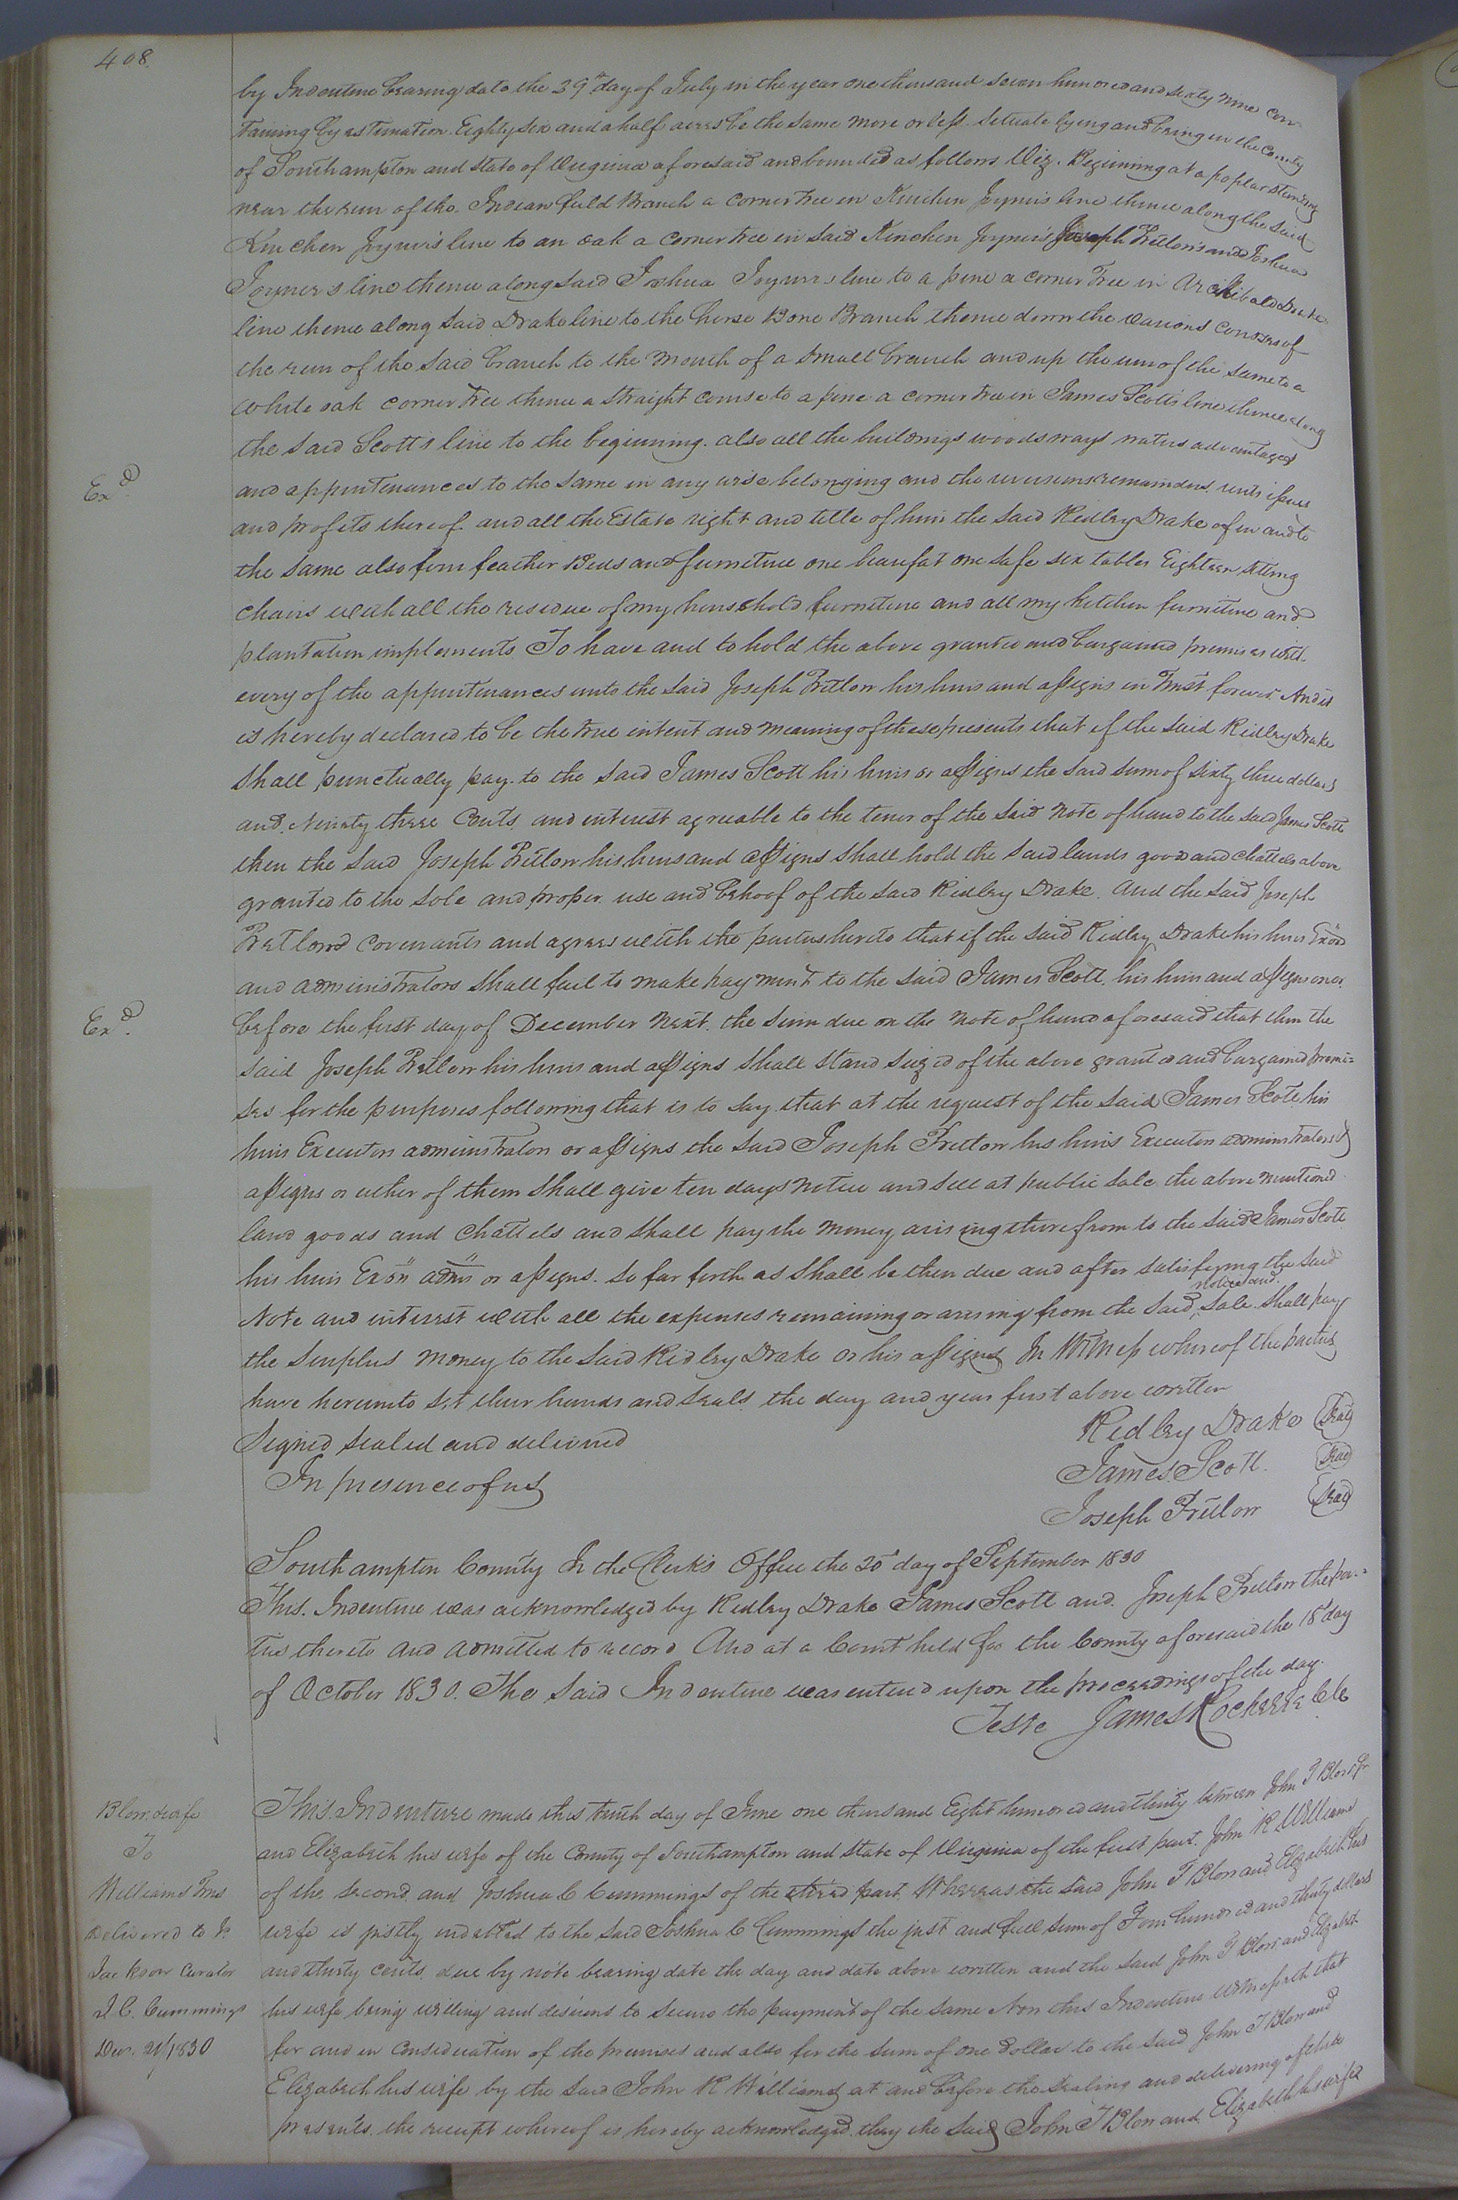 408
by Indenture bearing date the 29th day of July in the year one thousand seven hundred and sixty nine con-
taining by estimation Eighty six and a half acres be the same more or less situate lying and being in the County
of Southampton and State of Virginia aforesaid and bounded as follows Viz. Beginning at a poplar standing
near the run of the Indian field Branch a corner tree in Kinchen Joyner's line thence along the said
Kinchen Joyner's line to an oak a corner tree in said Kinchen Joyner's Joseph Pretlow's and Joshua
Joyner's line thence along said Joshua Joyners line to a pine a corner Tree in Archibald Drake
line thence along said Drake line to the horse Bone Branch thence down the various courses of
the run of the said branch to the mouth of a small branch and up the run of the same to a
white oak corner tree thence a straight course to a pine a corner tree in James Scotts line thence along
the said Scott's line to the beginning. also all the buildings woods ways waters advantages
Exd.
and appurtenances to the same in any wise belonging and the reversions remainders rents issues
and profits thereof and all the Estate right and title of him the said Ridley Drake of in and to
the same also four feather Beds and furniture one beaufat one safe six tables Eighteen sitting
chairs with all the residue of my household furniture and all my kitchen furniture and
plantation implements To have and to hold the above granted and bargained premises with
every of the appurtenances unto the said Joseph Pretlow his heirs and assigns in Trust forever And it
is hereby declared to be the true intent and meaning of these presents that if the said Ridley Drake
shall punctually pay to the said James Scott his heirs or assigns the said sum of sixty three dollars
and Ninety three Cents and interest agreeable to the tenor of the said note of hand to the said James Scott
then the said Joseph Pretlow his heirs and assigns shall hold the said lands goods and chattels above
granted to the sole and proper use and behoof of the said Ridley Drake. And the said Joseph
Pretlow covenants and agrees with the parties hereto that if the said Ridley Drake his heirs Exors
and administrators shall fail to make payment to the said James Scott his heirs and assigns on or
Exd.
before the first day of December next the sum due on the note of hand aforesaid that then the
said Joseph Pretlow his heirs and assigns shall stand seized of the above granted and bargained premi=
ses for the purposes following that is to say that at the request of the said James Scott his
heirs Executors administrators or assigns the said Joseph Pretlow his heirs Executors administrators &
assigns or either of them shall give ten days notice and sell at public sale the above mentioned
land goods and chattels and shall pay the money arising therefrom to the said James Scott
his heirs Exors adms or assigns so far forth as shall be then due and after satisfying the said
notice and
Note and interest with all the expenses remaining or arising from the said sale shall pay
the surplus money to the said Ridley Drake or his assigns In Witness whereof the parties
have hereunto set their hands and seals the day and year first above written
Signed sealed and delivered
Ridley Drake (Seal)
In presence of us
James Scott. (Seal)
Joseph Pretlow (Seal)
Southampton County In the Clerk's Office the 20th day of September 1830
This Indenture was acknowledged by Ridley Drake James Scott and Joseph Pretlow the par-
ties thereto and admitted to record And at a Court held for the County aforesaid the 18th day
of October 1830. The said Indenture was entered upon the proceedings of the day.
Teste James Rochelle Clk
Blow & wife
To
Williams Trus
Delivered to
Jackson Curator
J. C. Cummings
Decr. 21/1830
This Indenture made this tenth day of June one thousand Eight hundred and thirty between John T Blow Jr
and Elizabeth his wife of the County of Southampton and State of Virginia of the first part John R Williams
of the second and Joshua C Cummings of the third part. Whereas the said John T Blow and Elizabeth his
wife is justly indebted to the said Joshua C Cummings the just and full sum of Four hundred and thirty dollars
and thirty cents due by note bearing date the day and date above written and the said John T Blow and Elizabeth
his wife being willing and desirous to secure the payment of the same Now this Indenture Witnesseth that
for and in consideration of the premises and also for the sum of one dollar to the said John T Blow and
Elizabeth his wife by the said John R Williams at and before the sealing and delivering of these
presents the receipt whereof is hereby acknowledged they the said John T Blow and Elizabeth his wife